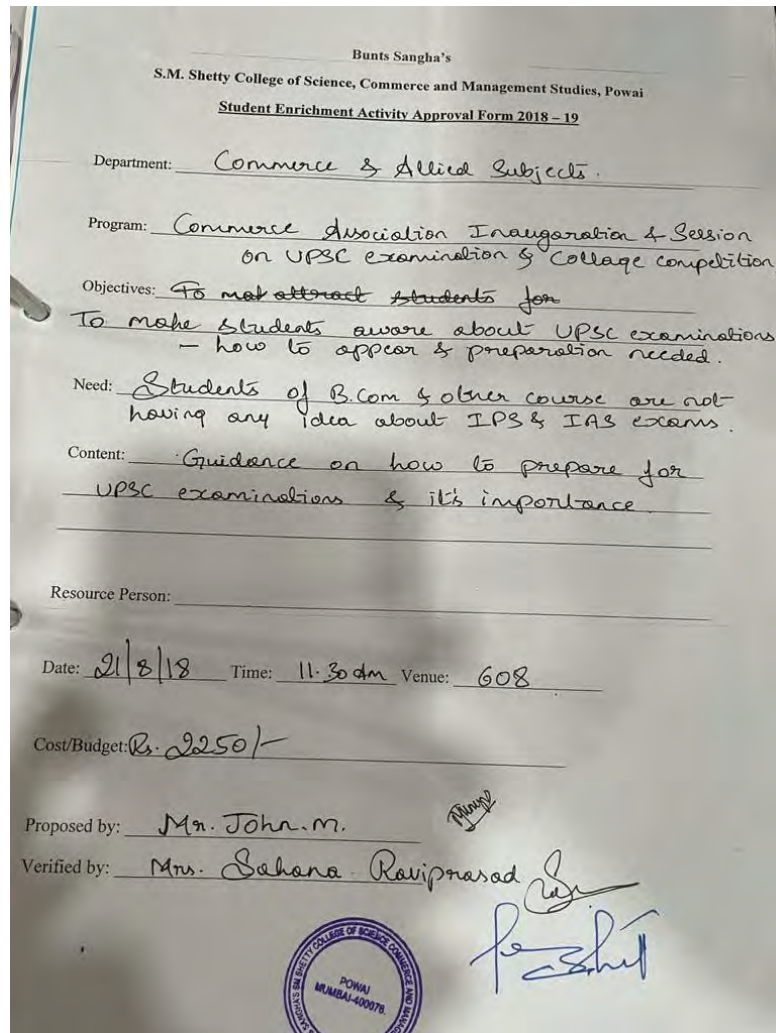 Bunts Sangha's
S.M. Shetty College of Science, Commerce and Management Studies, Powai
Student Enrichment Activity Approval Form 2018 – 19
Department: Commerce & Allied Subjects.
Program: Commerce Association Inaugaration & Session
on UPSC examination & Collage competition
Objectives: To mak attract students for
To make students aware about UPSC examinations
– how to appear & preparation needed.
Need: Students of B.Com & other course are not
having any idea about IPS & IAS exams.
Content: Guidance on how to prepare for
UPSC examinations & it's importance.
Resource Person:
Date: 21/8/18 Time: 11.30 am Venue: 608
Cost/Budget: Rs. 2250/-
Proposed by: Mr. John.M.
Verified by: Mrs. Sahana Raviprasad
SANGHA'S SM SHETTY COLLEGE OF SCIENCE COMMERCE AND
POWAI
MUMBAI-400076.